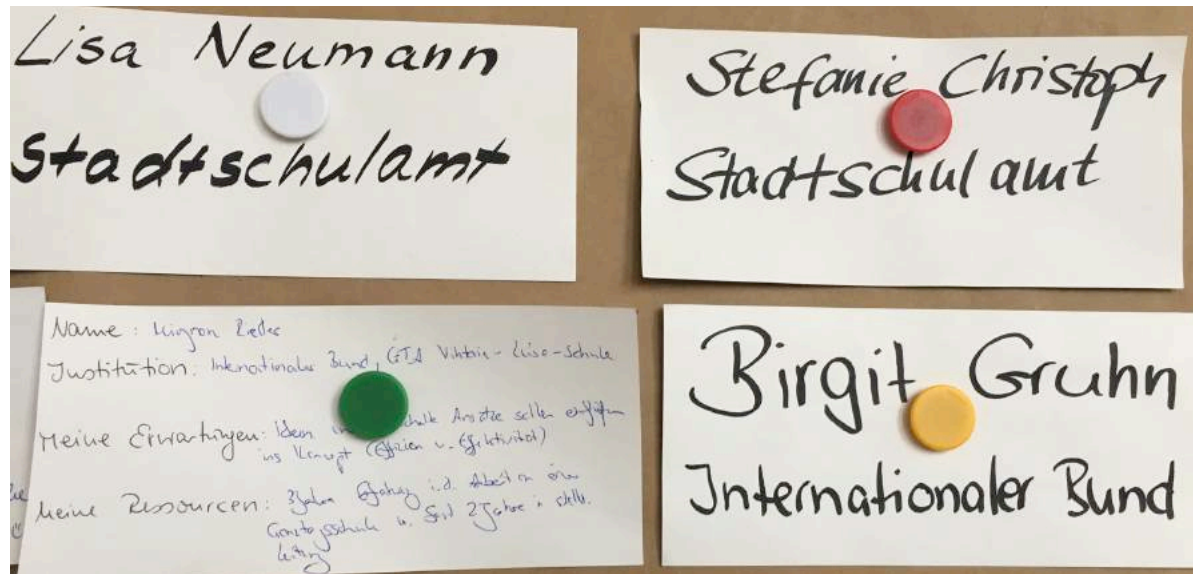 Lisa Neumann
Stadtschulamt
Stefanie Christoph
Stadtschulamt
Name: Mignon
Institution: Internationaler Bund, GTA Viktoria-Luise-Schule
Meine Erwartungen: Ideen Ansätze sollen
ins Konzept (Effizien u. Effektivität)
Meine Ressourcen: Erfahrung i.d. Arbeit an einer
Ganztagsschule u. seit 2 Jahre in stellv.
Leitung
Birgit Gruhn
Internationaler Bund